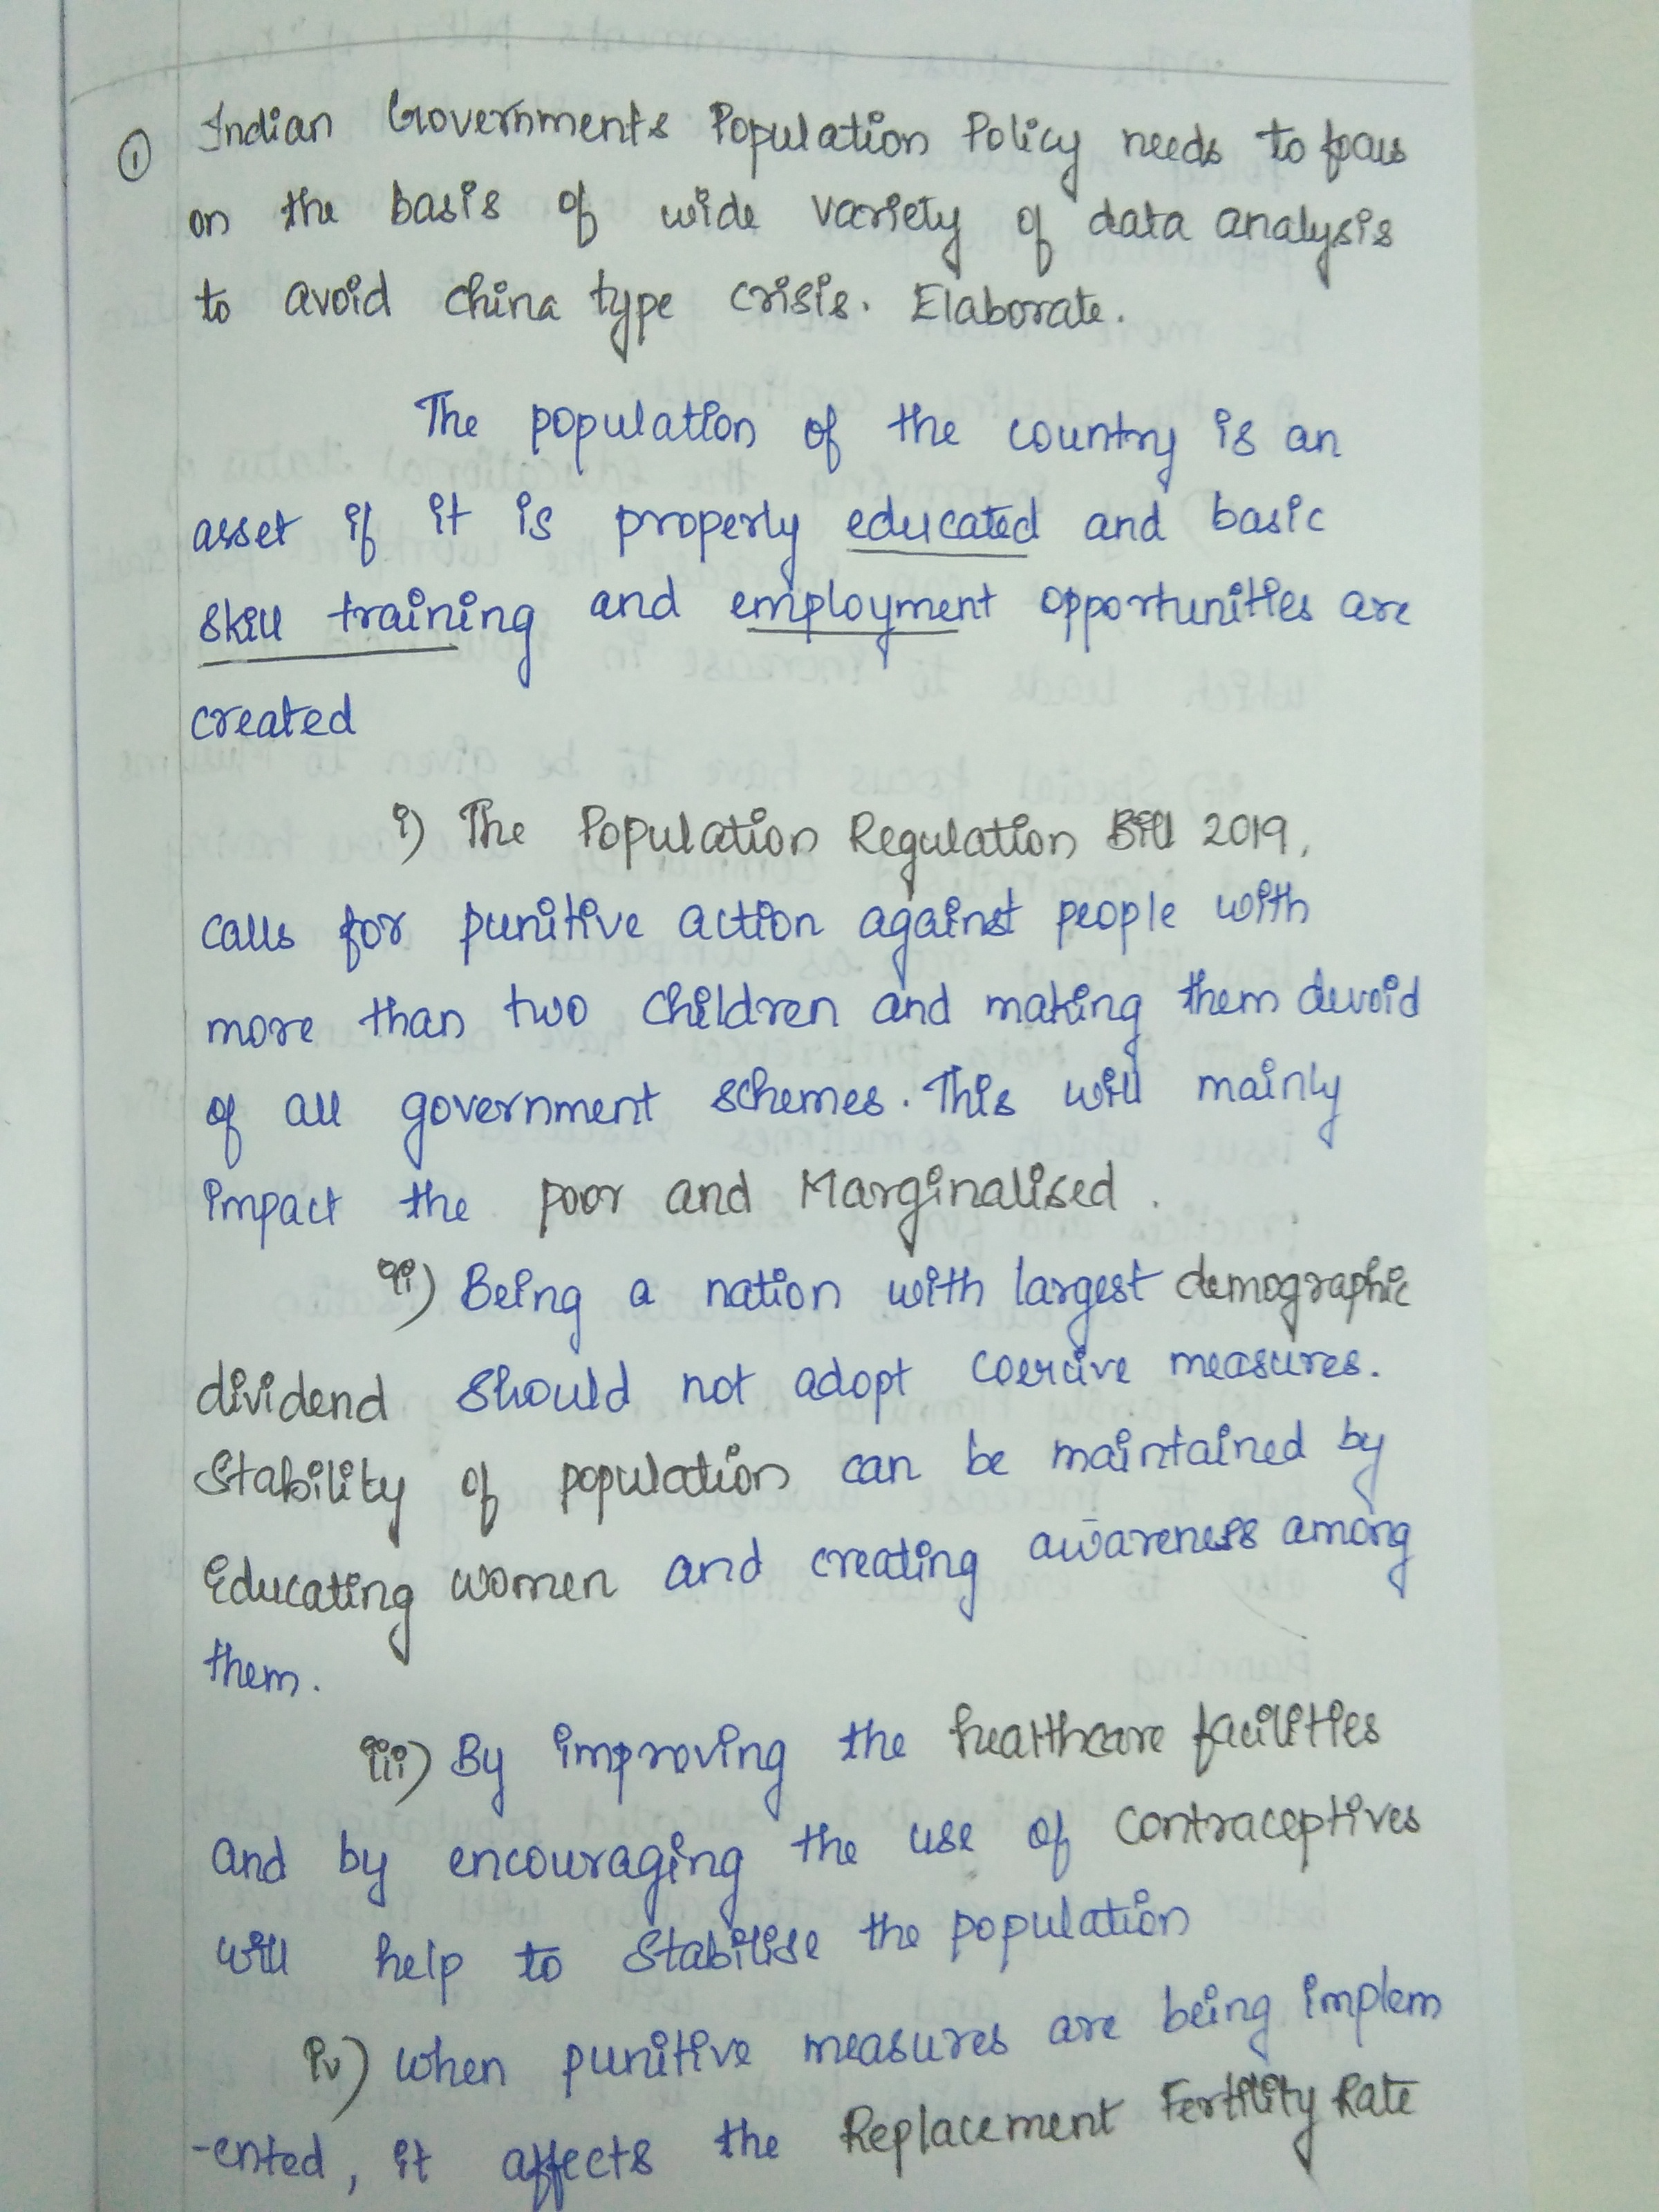 ① Indian Governments Population Policy needs to focus
on the basis of wide variety of data analysis
to avoid china type crisis. Elaborate.
The population of the country is an
asset if it is properly educated and basic
skill training and employment opportunities are
created
i) The Population Regulation Bill 2019,
calls for punitive action against people with
more than two children and making them devoid
of all government schemes. This will mainly
impact the poor and Marginalised.
ii) Being a nation with largest demographic
dividend should not adopt coercive measures.
Stability of population can be maintained by
Educating women and creating awareness among
them.
iii) By improving the healthcare facilities
and by encouraging the use of contraceptives
will help to stabilise the population
iv) when punitive measures are being implem
-ented, it affects the Replacement Fertility Rate